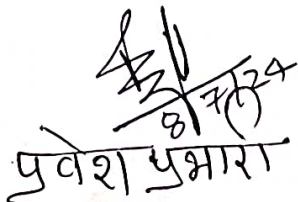 8/7/24
प्रवेश प्रभारी